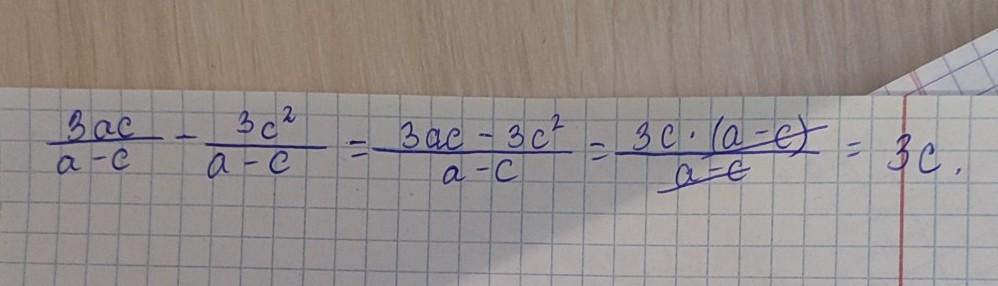 3ac/(a-c) - 3c²/(a-c) = (3ac-3c²)/(a-c) = 3c·(a-c)/(a-c) = 3c.